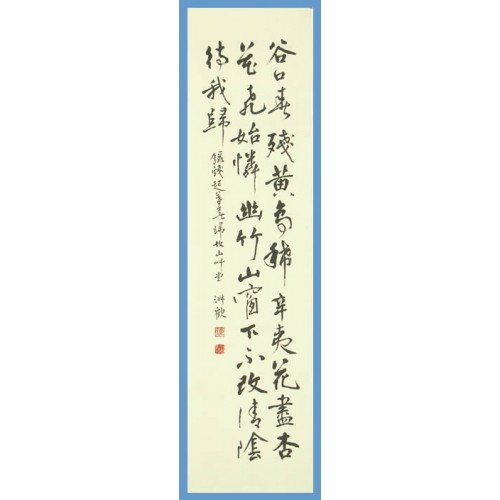 谷口春殘黃鳥稀辛夷花盡杏
花飛始憐幽竹山窗下不改清陰
待我歸
錄錢起暮春歸故山草堂 洲歡